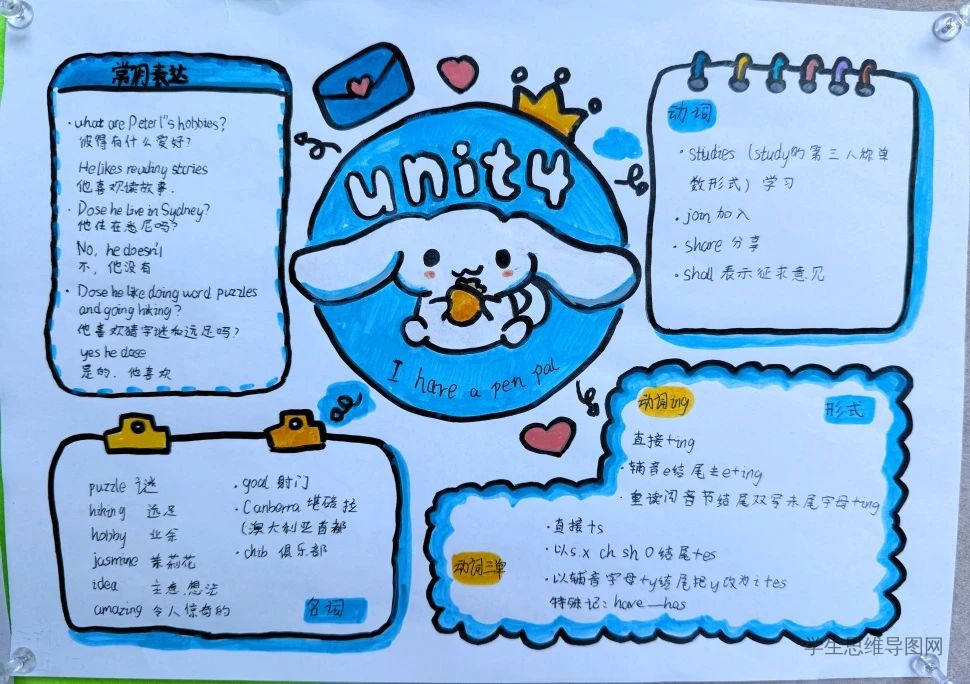 常用表达
·what are Peter's hobbies?
彼得有什么爱好?
He likes reading stories
他喜欢读故事.
·Dose he live in Sydney?
他住在悉尼吗?
No, he doesn't
不, 他没有
·Dose he like doing word puzzles
and going hiking?
他喜欢猜字谜和远足吗?
yes he dose
是的. 他喜欢
unit4
I have a pen pal
动词
·studies (study的第三人称单
数形式) 学习
·join 加入
·share 分享
·shall 表示征求意见
puzzle 谜
hiking 远足
hobby 业余
jasmine 茉莉花
idea 主意.想法
amazing 令人惊奇的
·goal 射门
·Canberra 堪培拉
(澳大利亚首都
·club 俱乐部
名词
动词ing
形式
直接+ing
·辅音e结尾去e+ing
·重读闭音节结尾双写末尾字母+ing
动词三单
·直接+s
·以s.x ch sh o结尾+es
·以辅音字母+y结尾把y改为i+es
特殊记: have—has
学生思维导图网